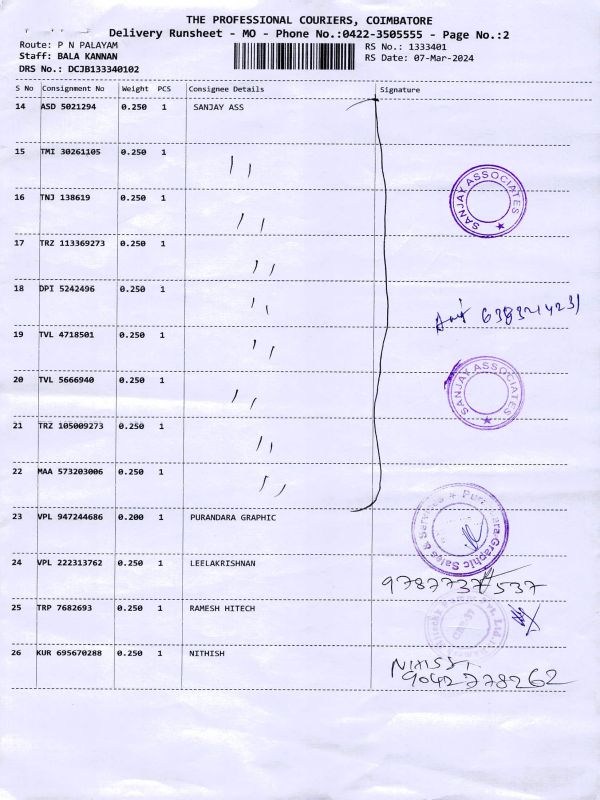 THE PROFESSIONAL COURIERS, COIMBATORE
Delivery Runsheet - MO - Phone No.:0422-3505555 - Page No.:2
Route: P N PALAYAM
RS No.: 1333401
Staff: BALA KANNAN
RS Date: 07-Mar-2024
DRS No.: DCJB133340102
S No Consignment No Weight PCS Consignee Details Signature
14 ASD 5021294 0.250 1 SANJAY ASS
15 TMI 30261105 0.250 1 ''
16 TNJ 138619 0.250 1 ''
SANJAY ASSOCIATES ★
17 TRZ 113369273 0.250 1 ''
18 DPI 5242496 0.250 1 ''
19 TVL 4718501 0.250 1 ''
20 TVL 5666940 0.250 1 ''
SANJAY ASSOCIATES ★
21 TRZ 105009273 0.250 1 ''
22 MAA 573203006 0.250 1 ''
23 VPL 947244686 0.200 1 PURANDARA GRAPHIC
Purandara Graphic Sales & Services
24 VPL 222313762 0.250 1 LEELAKRISHNAN
25 TRP 7682693 0.250 1 RAMESH HITECH
26 KUR 695670288 0.250 1 NITHISH
9042778262